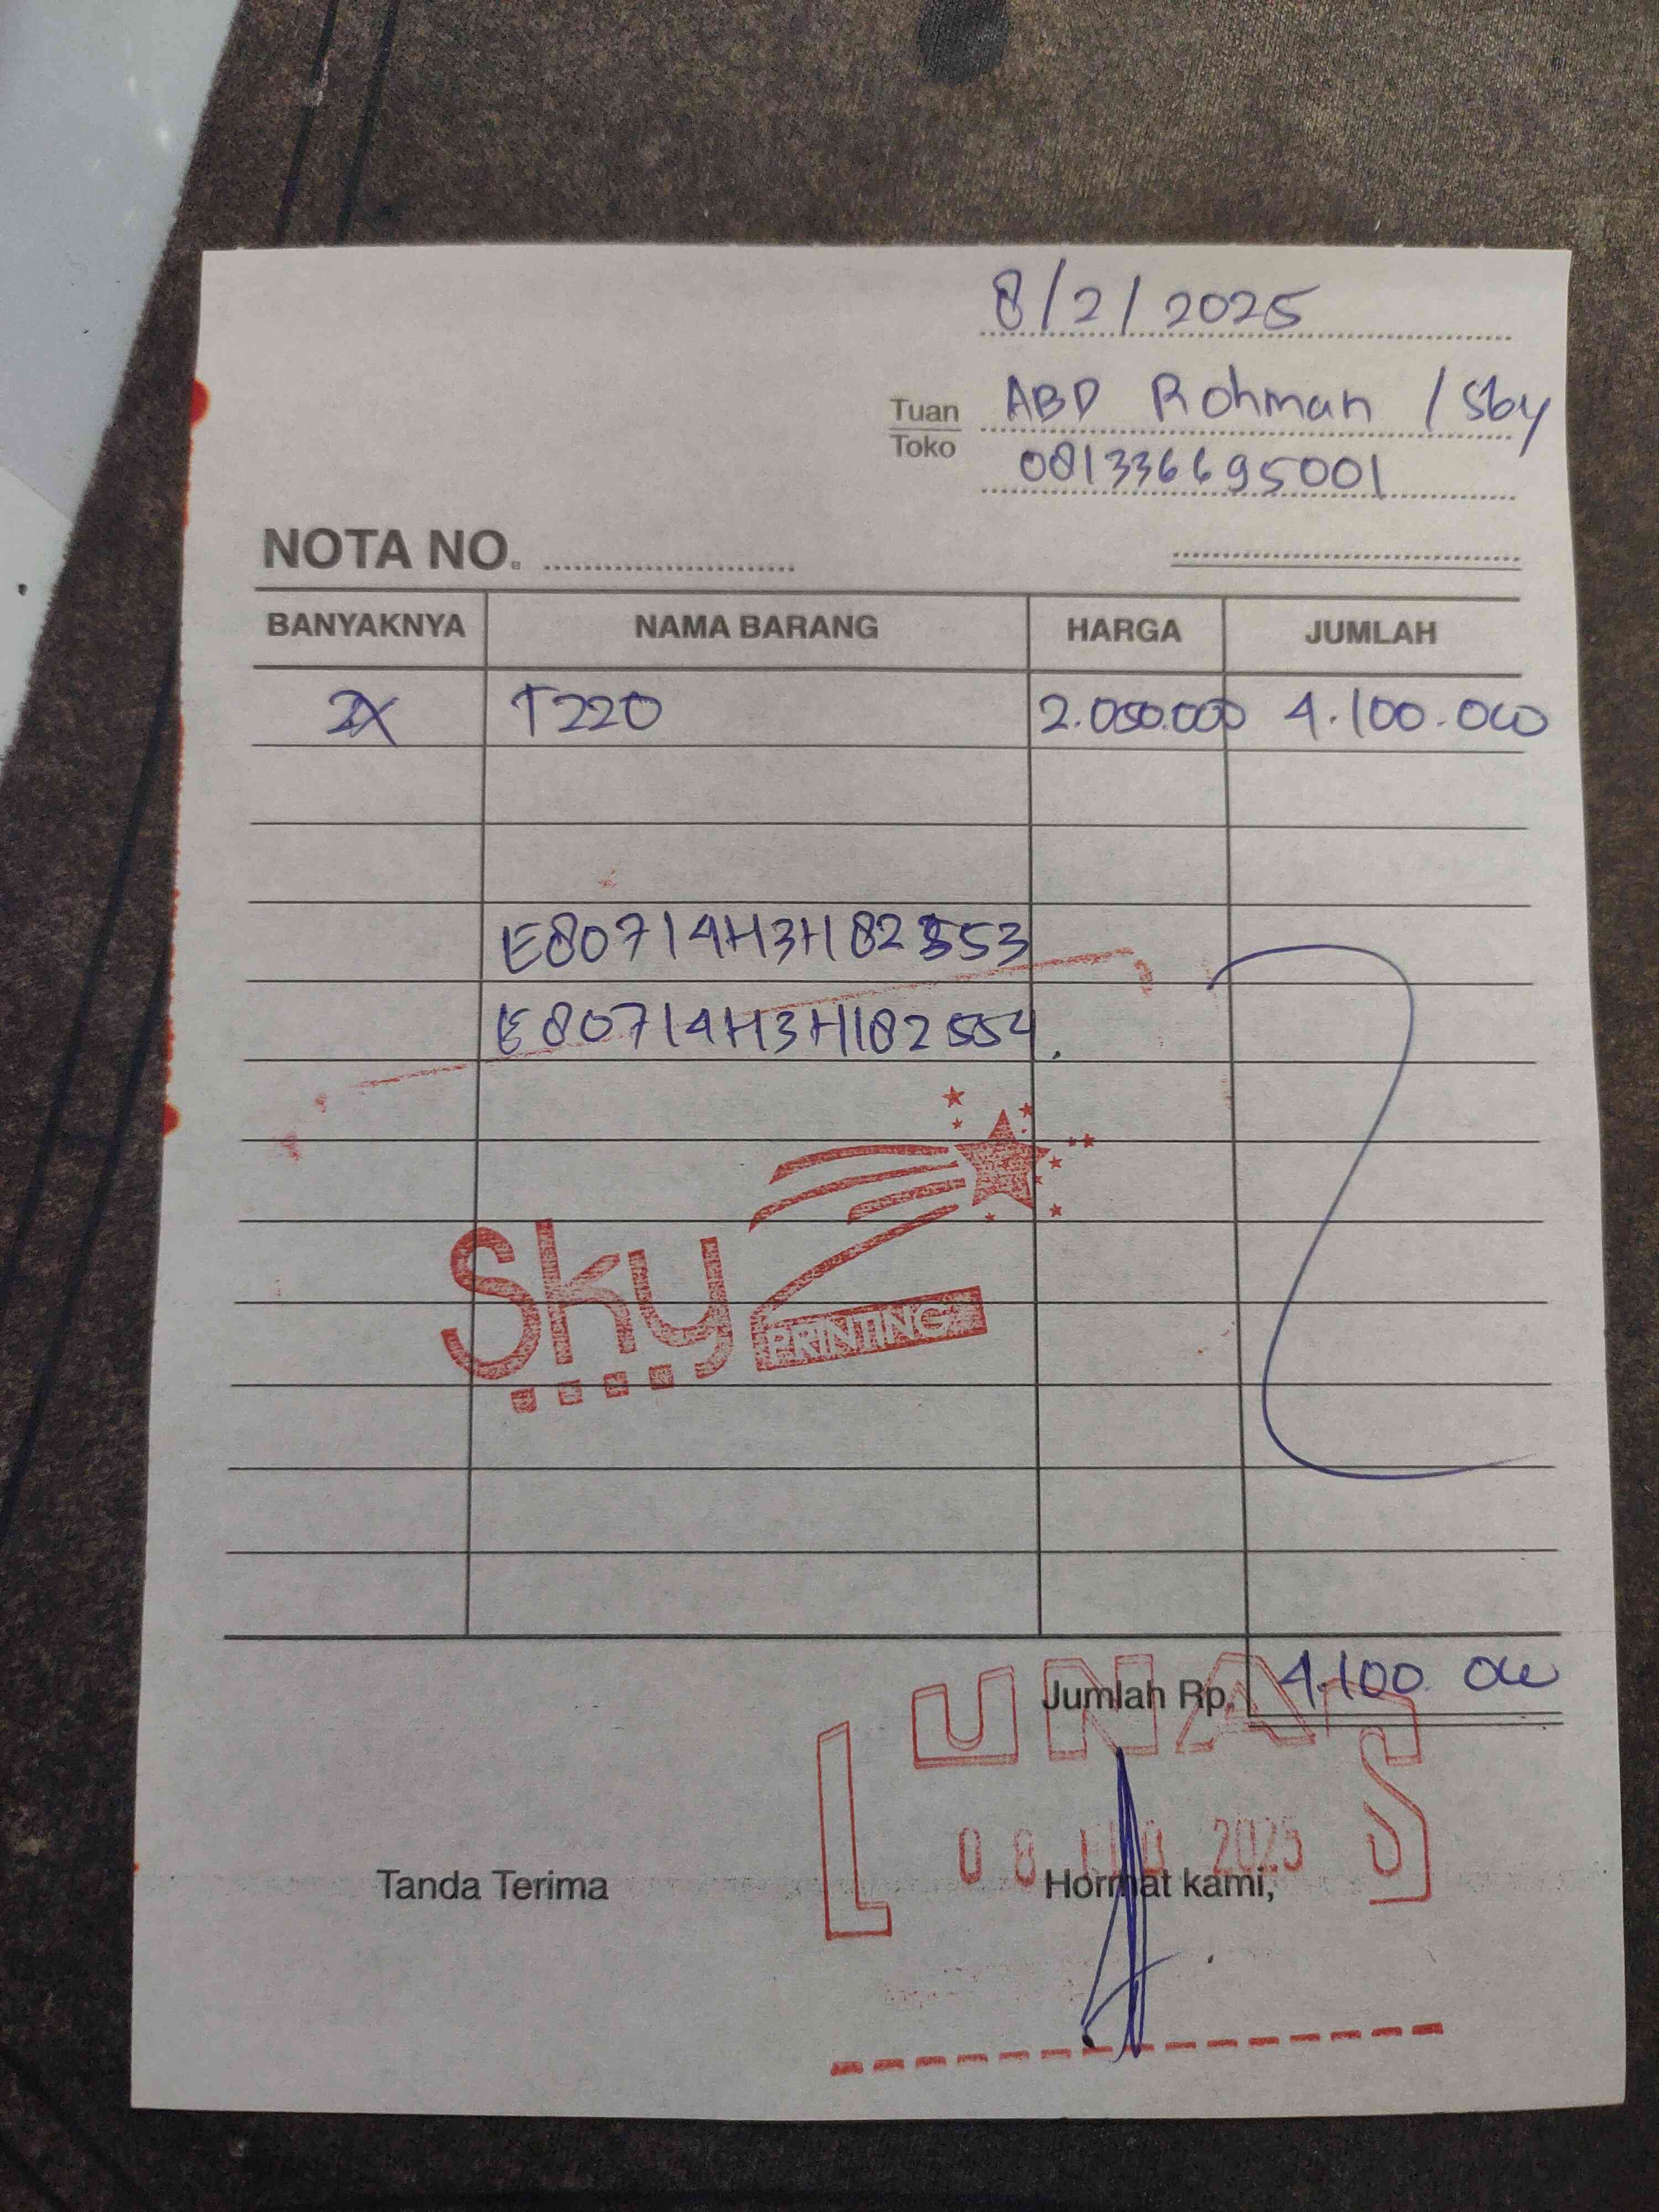 8/2/2025
Tuan ABD Rohman / Sby
Toko 081336695001
NOTA NO.
BANYAKNYA NAMA BARANG HARGA JUMLAH
2X T220 2.050.000 4.100.000
E80714H3H182553
E80714H3H182554
Sky
PRINTING
Jumlah Rp. 4.100.000
LUNAS
08 FEB 2025
Tanda Terima Hormat kami,